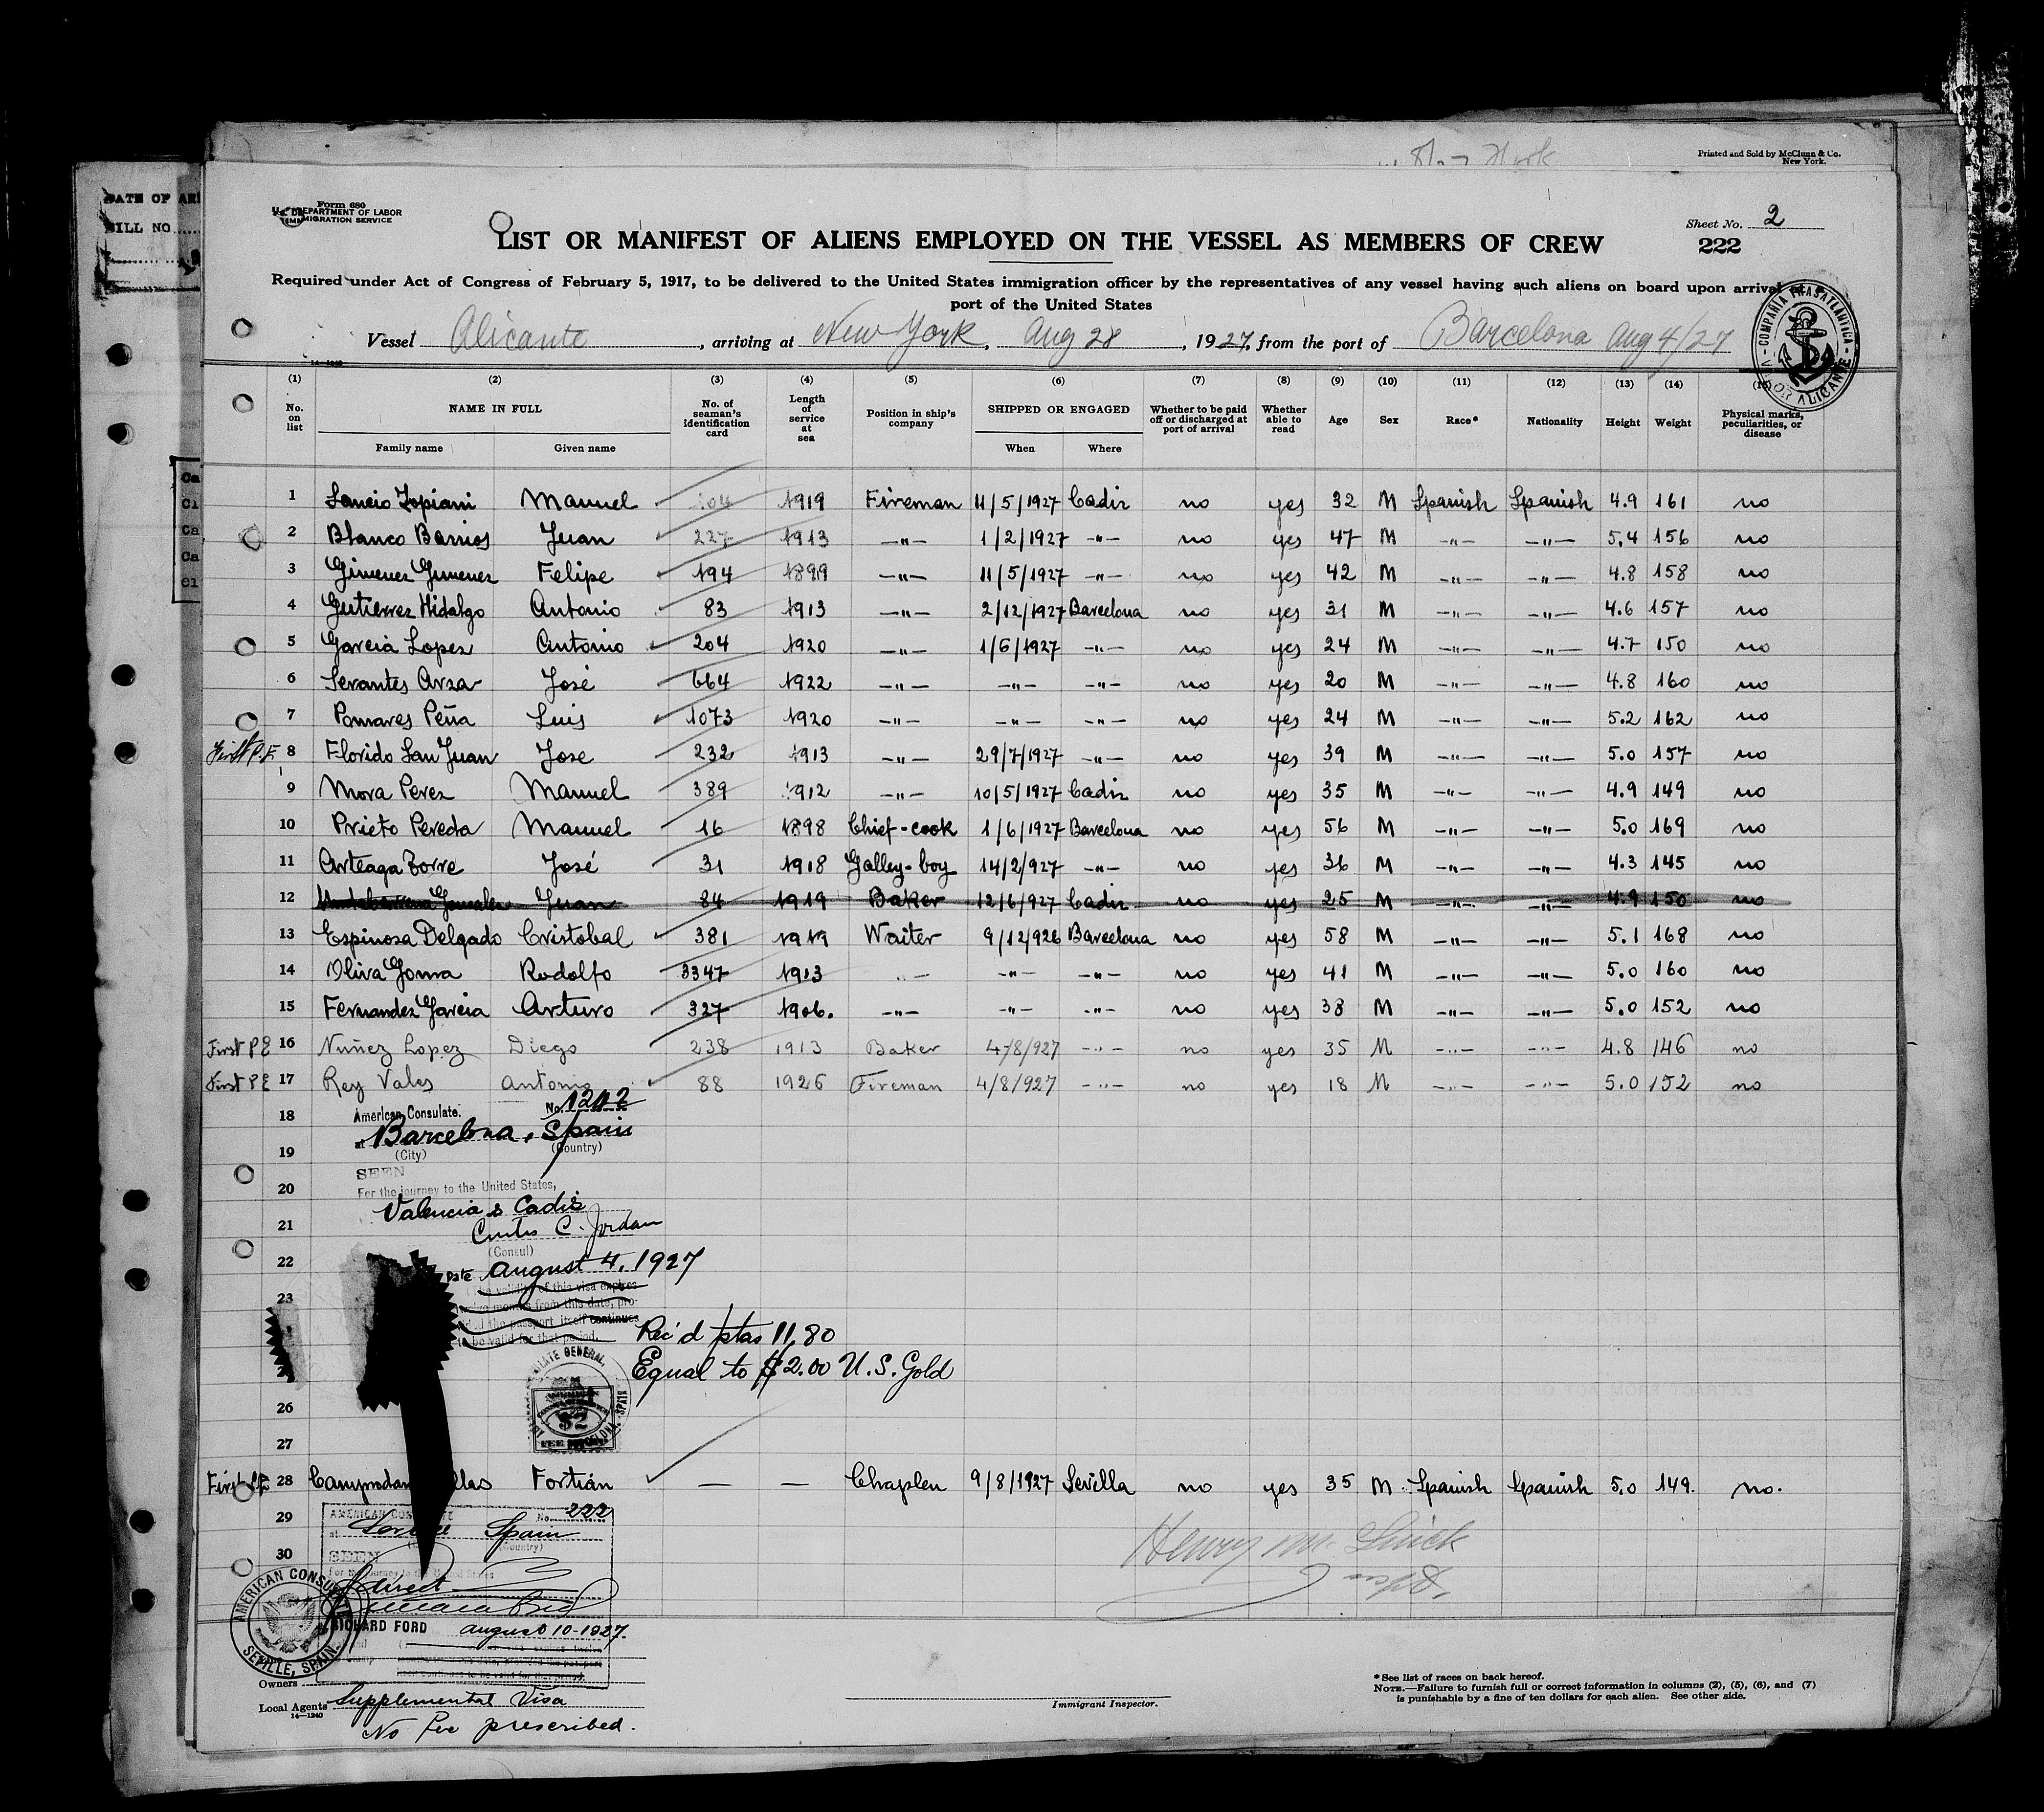 DATE OF AR
BILL NO.
New York
Printed and Sold by McClunn & Co.
New York.
Form 680
U.S. DEPARTMENT OF LABOR
IMMIGRATION SERVICE
Sheet No. 2
222
LIST OR MANIFEST OF ALIENS EMPLOYED ON THE VESSEL AS MEMBERS OF CREW
Required under Act of Congress of February 5, 1917, to be delivered to the United States immigration officer by the representatives of any vessel having such aliens on board upon arrival at
port of the United States
Vessel Alicante, arriving at New York, Aug 28, 1927, from the port of Barcelona Aug 4/27
COMPAÑIA TRASATLANTICA VAPOR ALICANTE
14-1240
(1) (2) (3) (4) (5) (6) (7) (8) (9) (10) (11) (12) (13) (14) (15)
No. on list NAME IN FULL Family name Given name No. of seaman's identification card Length of service at sea Position in ship's company SHIPPED OR ENGAGED When Where Whether to be paid off or discharged at port of arrival Whether able to read Age Sex Race* Nationality Height Weight Physical marks, peculiarities, or disease
1 Manuel 104 1919 Fireman 11/5/1927 Cadiz no yes 32 M Spanish Spanish 4.9 161 no
2 Blanco Barrios Juan 227 1913 -"- 1/2/1927 -"- no yes 47 M -"- -"- 5.4 156 no
3 Gimenez Gimenez Felipe 194 1899 -"- 11/5/1927 -"- no yes 42 M -"- -"- 4.8 158 no
4 Gutierrez Hidalgo Antonio 83 1913 -"- 2/12/1927 Barcelona no yes 31 M -"- -"- 4.6 157 no
5 Garcia Lopez Antonio 204 1920 -"- 1/6/1927 -"- no yes 24 M -"- -"- 4.7 150 no
6 Serantes Arza José 664 1922 -"- -"- -"- no yes 20 M -"- -"- 4.8 160 no
7 Pomares Peña Luis 1073 1920 -"- -"- -"- no yes 24 M -"- -"- 5.2 162 no
First P.E. 8 Florido San Juan Jose 232 1913 -"- 29/7/1927 -"- no yes 39 M -"- -"- 5.0 157 no
9 Mora Perez Manuel 389 1912 -"- 10/5/1927 Cadiz no yes 35 M -"- -"- 4.9 149 no
10 Prieto Pereda Manuel 16 1898 Chief-cook 1/6/1927 Barcelona no yes 56 M -"- -"- 5.0 169 no
11 Arteaga Torre José 31 1918 Galley-boy 14/2/927 -"- no yes 36 M -"- -"- 4.3 145 no
12 Juan 84 1919 Baker 12/6/927 Cadiz no yes 25 M -"- -"- 4.9 150 no
13 Espinosa Delgado Cristobal 381 1919 Waiter 9/12/926 Barcelona no yes 58 M -"- -"- 5.1 168 no
14 Oliva Goma Rodolfo 3347 1913 -"- -"- -"- no yes 41 M -"- -"- 5.0 160 no
15 Fernandez Garcia Arturo 327 1906. -"- -"- -"- no yes 38 M -"- -"- 5.0 152 no
First P E 16 Nuñez Lopez Diego 238 1913 Baker 4/8/927 -"- no yes 35 M -"- -"- 4.8 146 no
First P E 17 Rey Vales Antonio 88 1926 Fireman 4/8/927 -"- no yes 18 M -"- -"- 5.0 152 no
18 American Consulate. No. 1212
at Barcelona, Spain
19 (City) (Country)
SEEN
20 For the journey to the United States,
Valencia & Cadiz
21 Curtis C. Jordan
(Consul)
22 Date August 4, 1927
validity of this visa expires
23 months from this date, pro-
the passport itself continues
to be valid for that period.
Rec'd ptas 11.80
Equal to $2.00 U.S. Gold
26
27
First P.E. 28 Fortián — — Chaplen 9/8/1927 Sevilla no yes 35 M Spanish Spanish 5.0 149. no.
29 AMERICAN CONSULATE No. 222
at Spain
(Country)
30 SEEN
For the journey to the United States
Direct
AMERICAN CONSULATE SEVILLE, SPAIN.
RICHARD FORD August 10-1927.
Henry M.
Owners
Local Agents Supplemental Visa
14-1240
No fee prescribed.
Immigrant Inspector.
*See list of races on back hereof.
NOTE.—Failure to furnish full or correct information in columns (2), (5), (6), and (7)
is punishable by a fine of ten dollars for each alien. See other side.